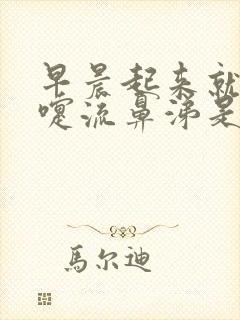 早晨起来就
嚏流鼻涕是
馬尔迪